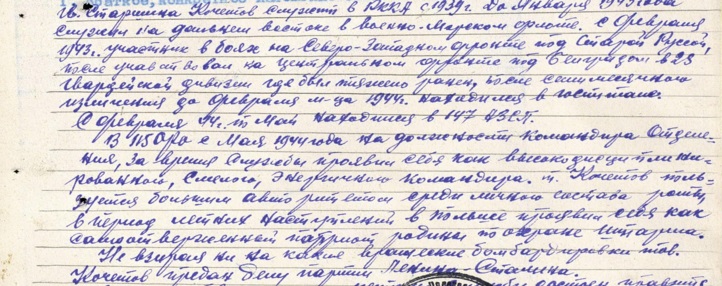 Гв. Старшина Кочетов служит в РККА с 1939г. До Января 1943 года
служил на дальнем востоке в военно-Морском флоте. с Февраля
1943г. участник в боях на Северо-Западном фронте под Старой Руссой,
после участвовал на Центральном фронте под в 23
Гвардейской дивизии где был тяжело ранен, после семимесячного
излечения до Февраля м-ца 1944г. находился в госпитале.
С февраля 44г. по Май находился в 147 АЗСП.
В 115 ОРО с Мая 1944 года на должности Командира Отделе-
ния, за время Службы проявил себя как высокодисциплини-
рованного, Смелого, Энергичного Командира. т. Кочетов поль-
зуется большим авторитетом среди личного состава роты
в период летних наступлений в Польше проявил себя как
самоотверженный патриот родины по охране Штарма.
Не взирая ни на какие вражеские бомбардировки тов.
Кочетов предан делу партии Ленина-Сталина.